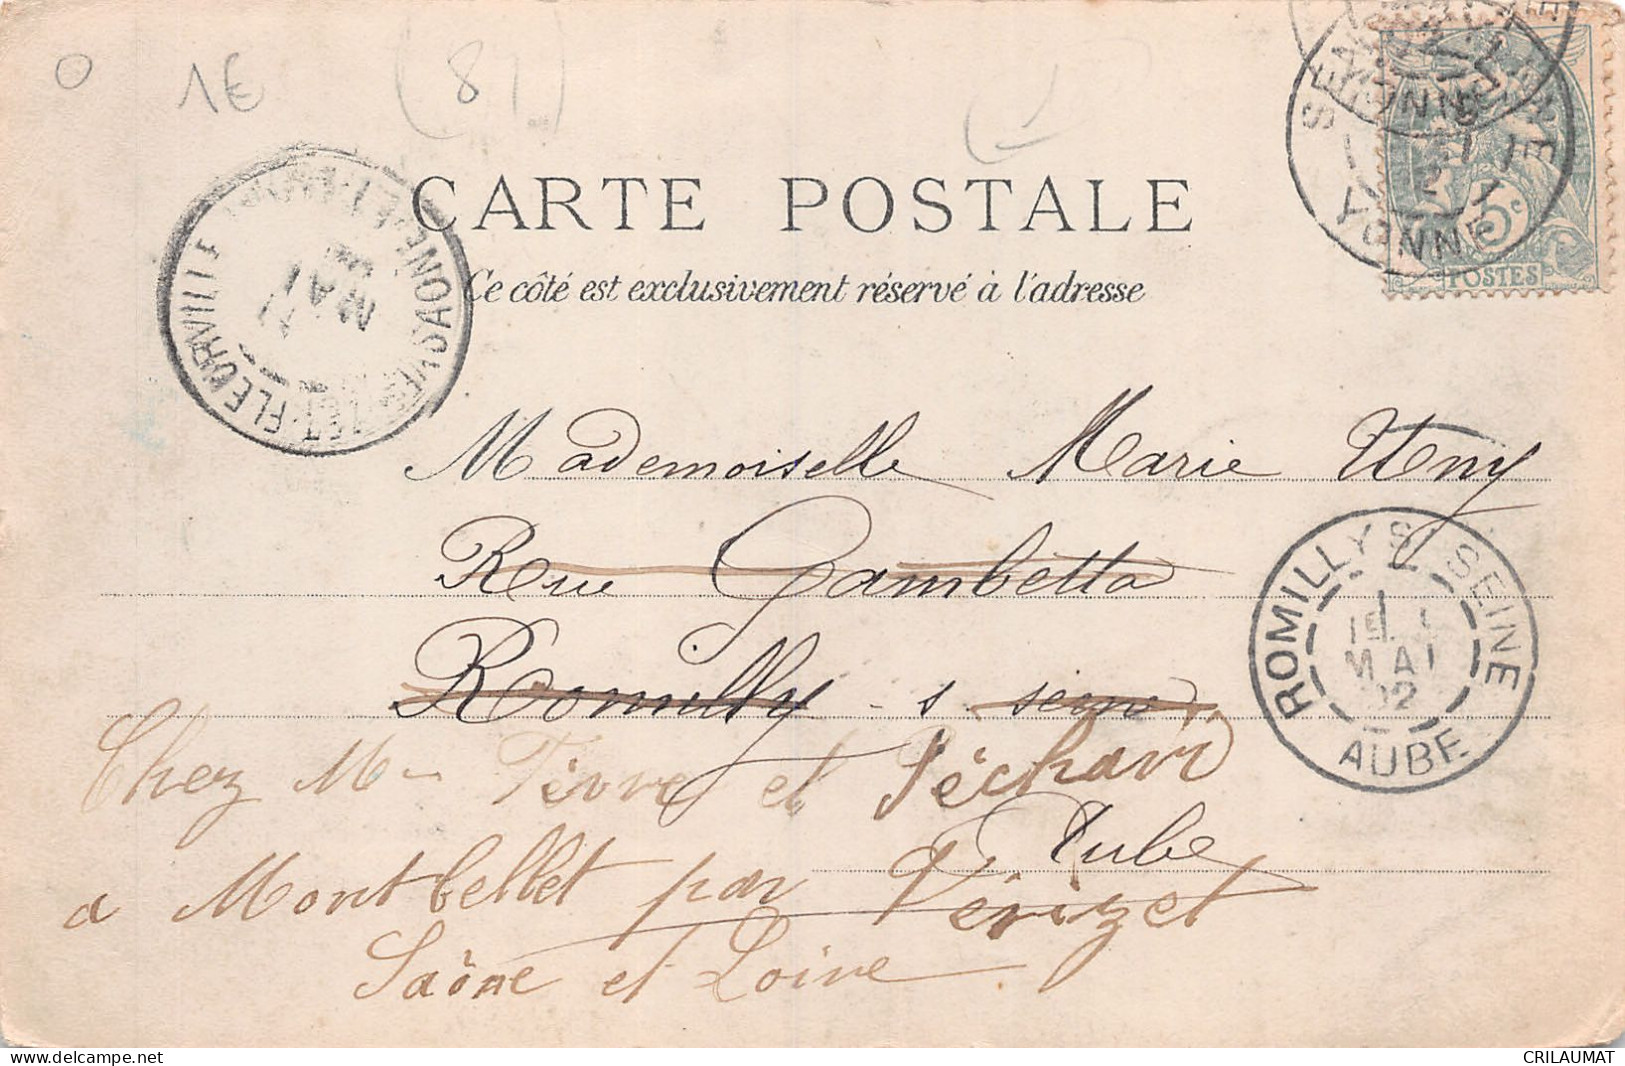 0
1€
(8)
SENS
YONNE
5c
POSTES
CARTE POSTALE
Ce côté est exclusivement réservé à l'adresse
FLEURVILLE
SAONE-ET-L
MAI
Mademoiselle Marie
Rue Gambetta
Romilly - s seine
Aube
ROMILLY S. SEINE
1E
MAI
02
AUBE
Chez Mr et Péchard
a Montbellet par Vérizet
Saône et Loire
CRILAUMAT